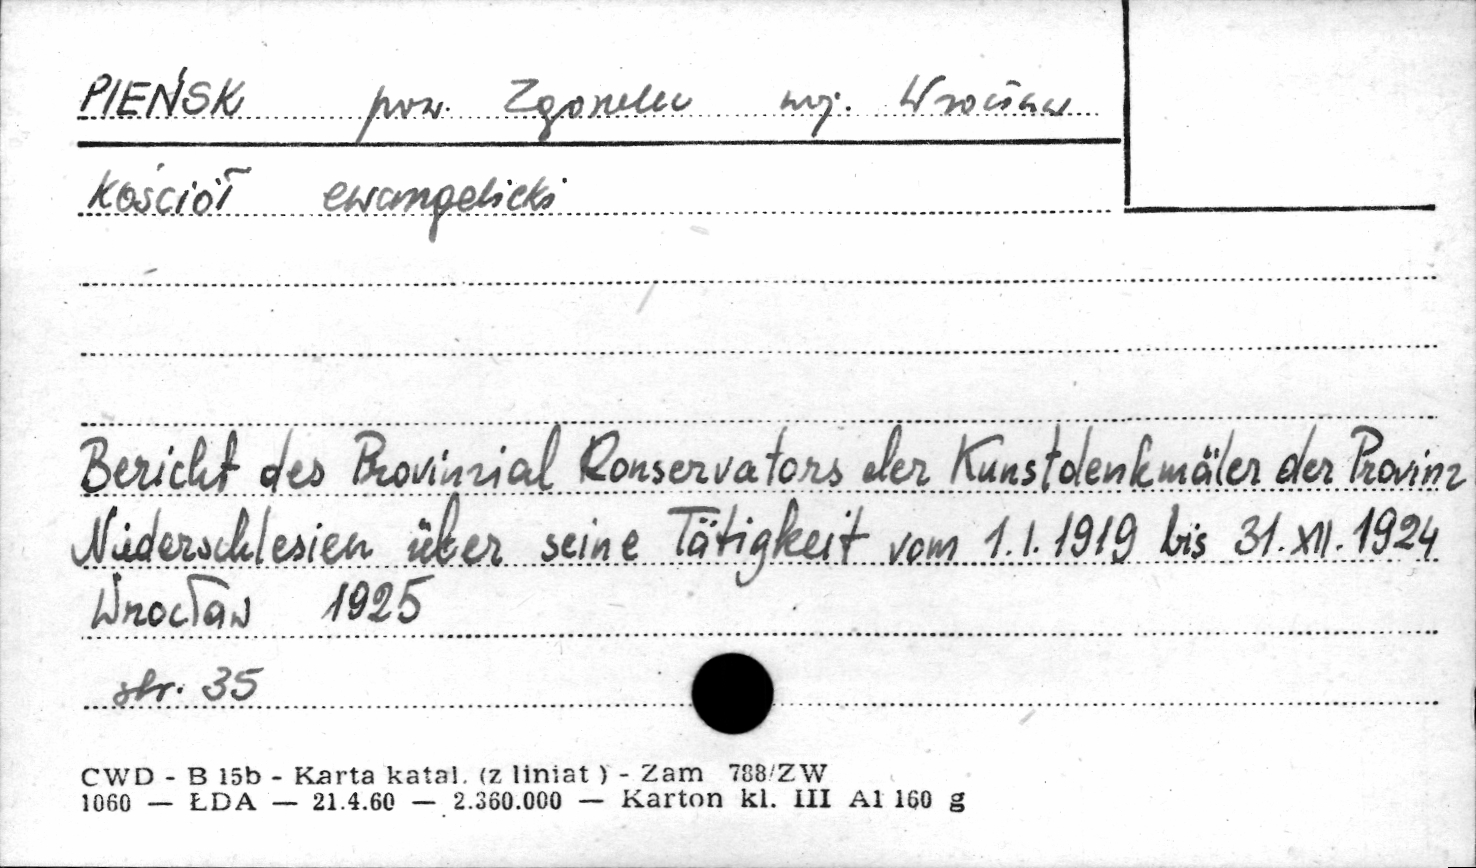 PIEŃSK pow. Zgorzelec woj. Wrocław
Kościół ewangelicki
Bericht des Provinzial Konservators der Kunstdenkmäler der Provinz
Niederschlesien über seine Tätigkeit vom 1.I.1919 bis 31.XII.1924
Wrocław 1925
str. 35
CWD - B 15b - Karta katal. (z liniat ) - Zam 788/ZW
1060 — ŁDA — 21.4.60 — 2.360.000 — Karton kl. III A1 160 g